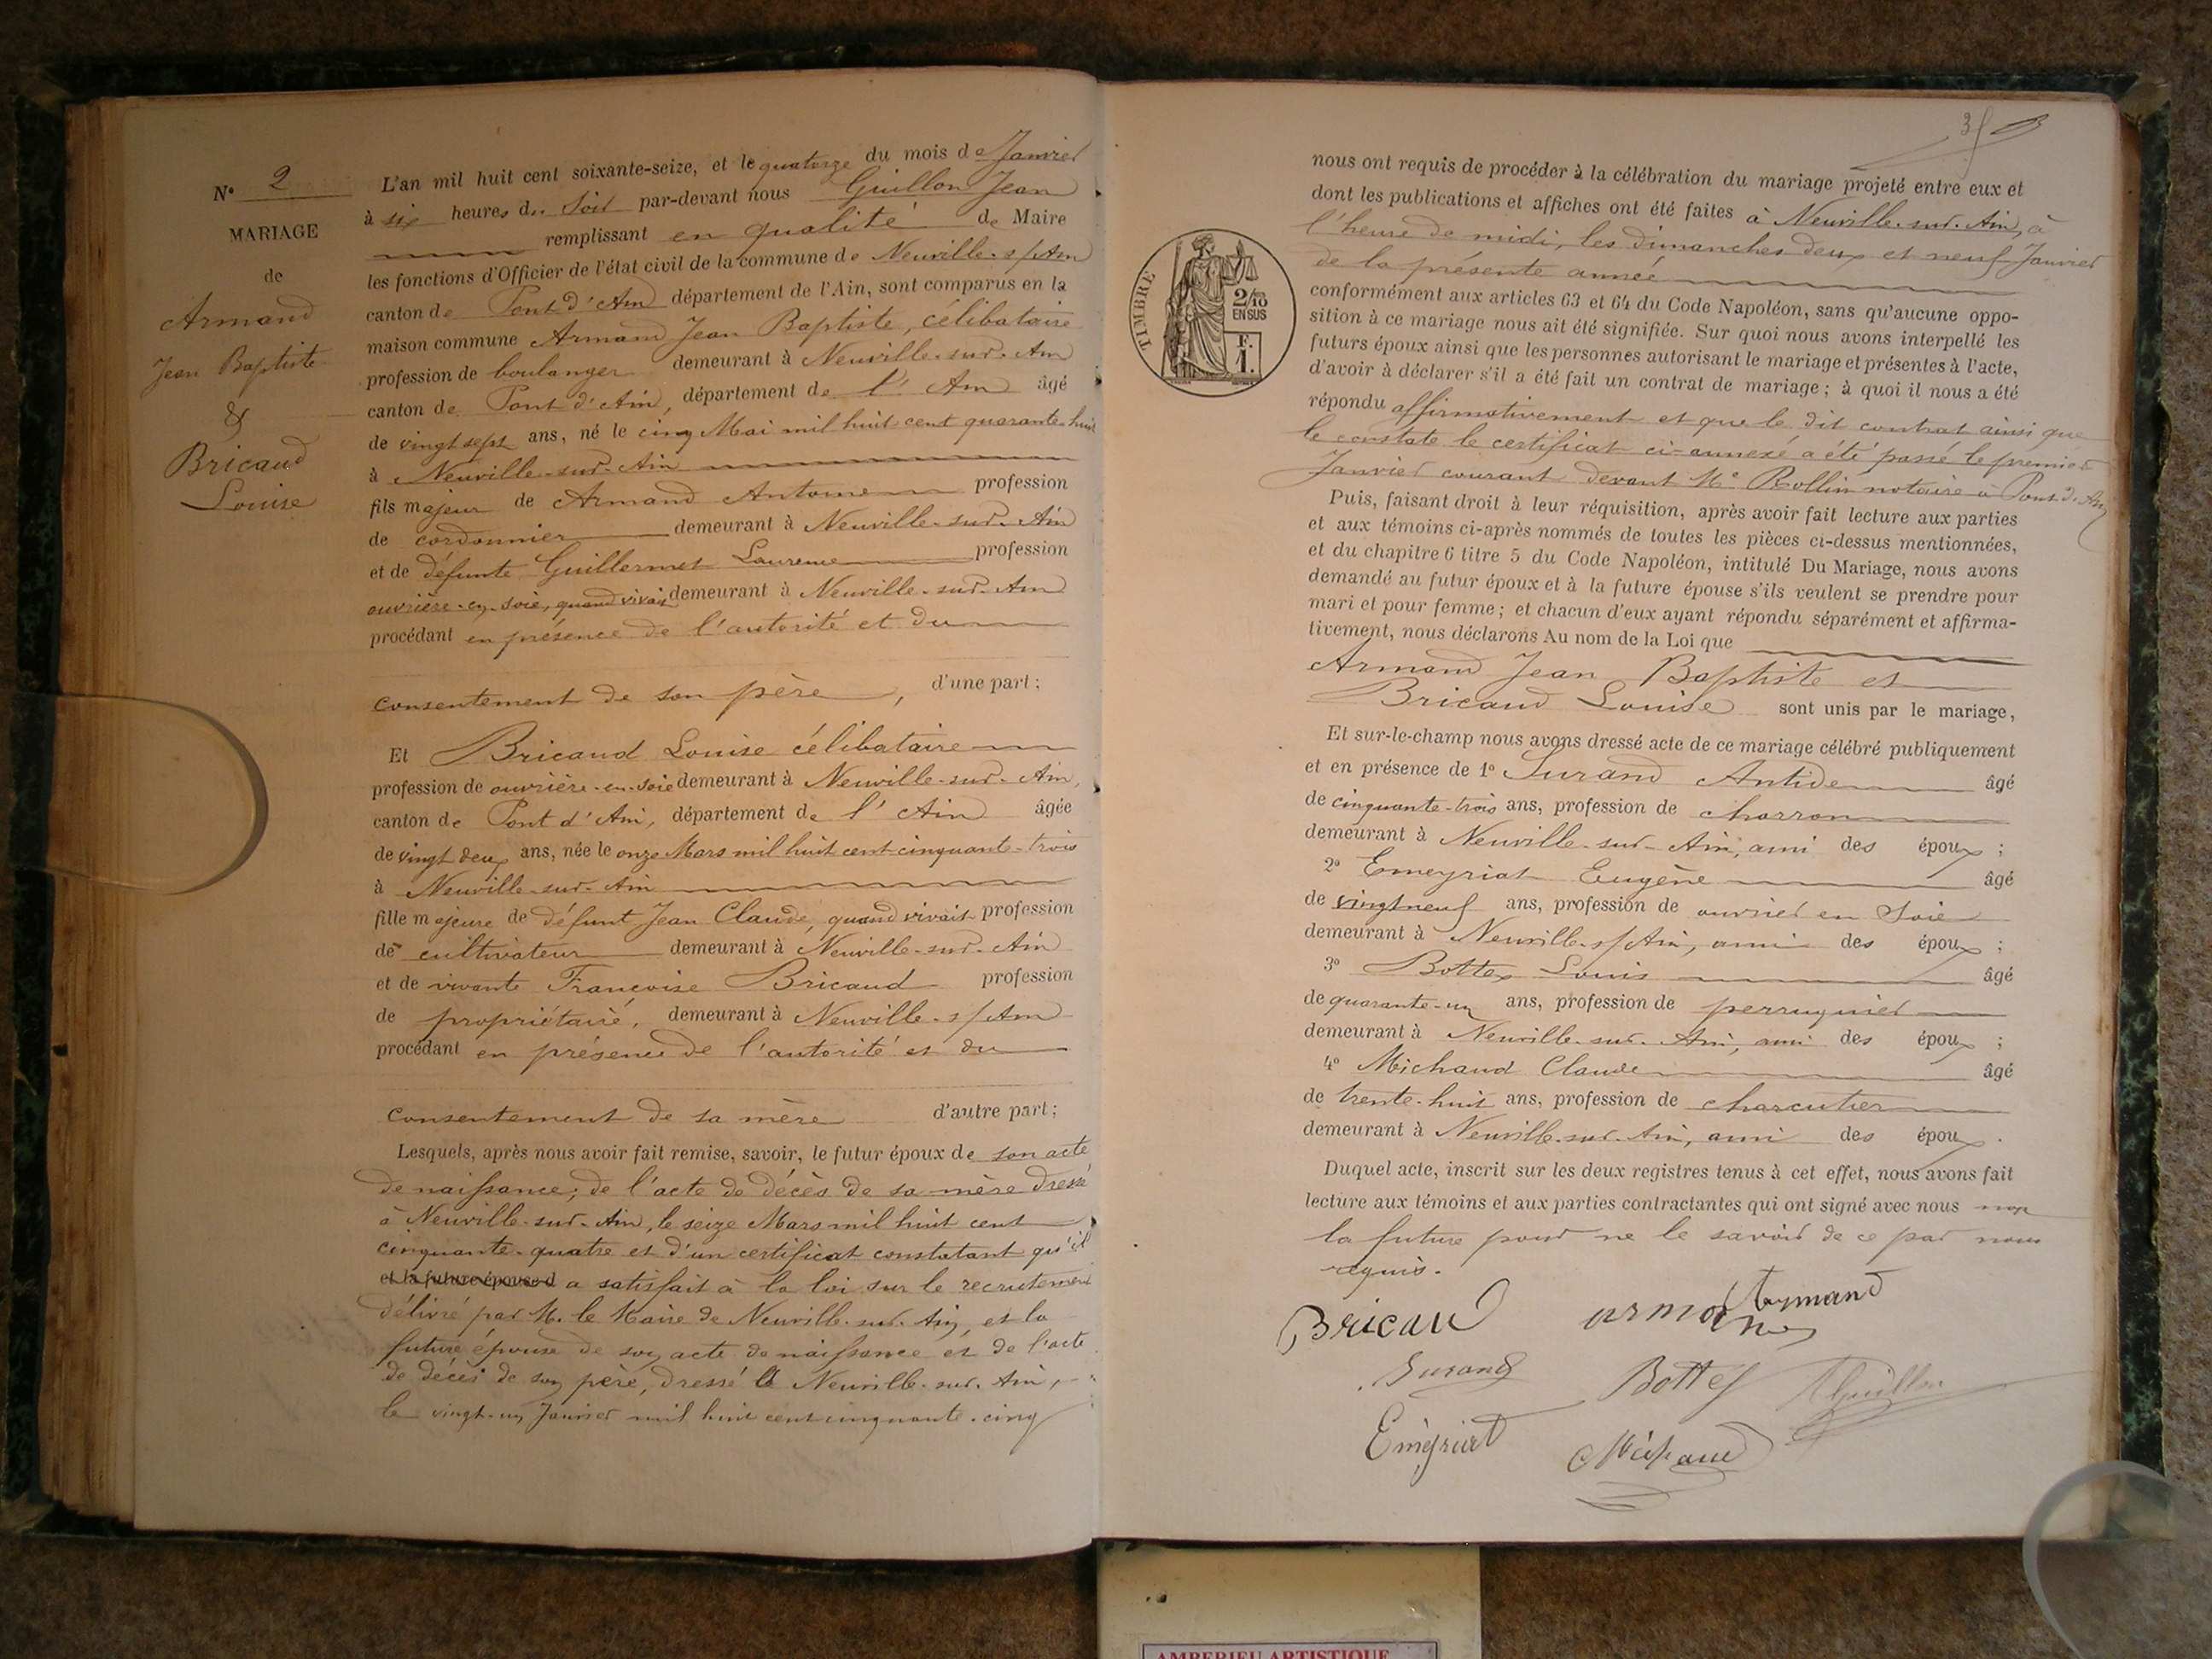 N° 2
MARIAGE
de
Armand
Jean Baptiste
&
Bricaud
Louise
L'an mil huit cent soixante-seize, et le quatorze du mois de Janvier
à six heures du Soir par-devant nous Guillon Jean
remplissant en qualité de Maire
les fonctions d'Officier de l'état civil de la commune de Neuville-s/Ain
canton de Pont d'Ain département de l'Ain, sont comparus en la
maison commune Armand Jean Baptiste, célibataire
profession de boulanger demeurant à Neuville-sur-Ain
canton de Pont d'Ain, département de l'Ain âgé
de vingt sept ans, né le cinq Mai mil huit cent quarante-huit
à Neuville-sur-Ain
fils majeur de Armand Antoine profession
de cordonnier demeurant à Neuville-sur-Ain
et de défunte Guillermet Laurence profession
ouvrière-en-soie, quand vivait demeurant à Neuville-sur-Ain
procédant en présence de l'autorité et du
consentement de son père, d'une part;
Et Bricaud Louise célibataire
profession de ouvrière-en-soie demeurant à Neuville-sur-Ain,
canton de Pont d'Ain, département de l'Ain âgée
de vingt deux ans, née le onze Mars mil huit cent cinquante-trois
à Neuville-sur-Ain
fille majeure de défunt Jean Claude, quand vivait profession
de cultivateur demeurant à Neuville-sur-Ain
et de vivante Françoise Bricaud profession
de propriétaire, demeurant à Neuville-s/Ain
procédant en présence de l'autorité et du
consentement de sa mère d'autre part;
Lesquels, après nous avoir fait remise, savoir, le futur époux de son acte
de naissance; de l'acte de décès de sa mère dressé
à Neuville-sur-Ain, le seize Mars mil huit cent
cinquante-quatre et d'un certificat constatant qu'il
et la future épouse d a satisfait à la loi sur le recrutement
délivré par M. le Maire de Neuville-sur-Ain, et la
future épouse de son acte de naissance et de l'acte
de décès de son père, dressé à Neuville-sur-Ain,
le vingt-un Janvier mil huit cent cinquante-cinq
3
nous ont requis de procéder à la célébration du mariage projeté entre eux et
dont les publications et affiches ont été faites à Neuville-sur-Ain, à
l'heure de midi, les dimanches deux et neuf Janvier
de la présente année
TIMBRE
2/10
EN SUS
F.
1.
conformément aux articles 63 et 64 du Code Napoléon, sans qu'aucune oppo-
sition à ce mariage nous ait été signifiée. Sur quoi nous avons interpellé les
futurs époux ainsi que les personnes autorisant le mariage et présentes à l'acte,
d'avoir à déclarer s'il a été fait un contrat de mariage; à quoi il nous a été
répondu affirmativement et que le dit contrat ainsi que
le constate le certificat ci-annexé a été passé le premier
Janvier courant devant Me Rollin notaire à Pont d'Ain
Puis, faisant droit à leur réquisition, après avoir fait lecture aux parties
et aux témoins ci-après nommés de toutes les pièces ci-dessus mentionnées,
et du chapitre 6 titre 5 du Code Napoléon, intitulé Du Mariage, nous avons
demandé au futur époux et à la future épouse s'ils veulent se prendre pour
mari et pour femme; et chacun d'eux ayant répondu séparément et affirma-
tivement, nous déclarons Au nom de la Loi que
Armand Jean Baptiste et
Bricaud Louise sont unis par le mariage,
Et sur-le-champ nous avons dressé acte de ce mariage célébré publiquement
et en présence de 1° Surand Antide âgé
de cinquante-trois ans, profession de charron
demeurant à Neuville-sur-Ain, ami des époux;
2° Emeyriat Eugène âgé
de vingt neuf ans, profession de ouvrier en Soie
demeurant à Neuville-s/Ain, ami des époux;
3° Bottex Louis âgé
de quarante-un ans, profession de perruquier
demeurant à Neuville-sur-Ain, ami des époux;
4° Michaud Claude âgé
de trente-huit ans, profession de charcutier
demeurant à Neuville-sur-Ain, ami des époux.
Duquel acte, inscrit sur les deux registres tenus à cet effet, nous avons fait
lecture aux témoins et aux parties contractantes qui ont signé avec nous non
la future pour ne le savoir de ce par nous
requis.
Bricaud Armand
Surand Bottex Guillon
Emeyriat Michaud
AMBERIEU ARTISTIQUE